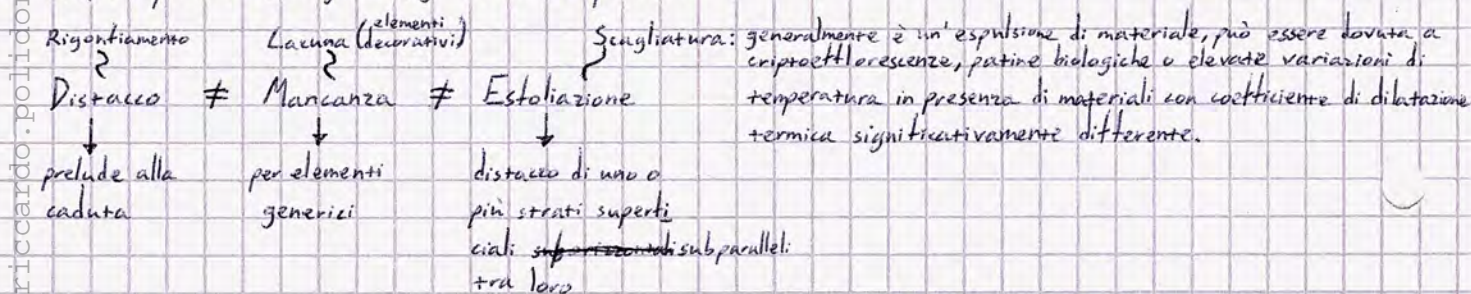 Rigonfiamento
Lacuna (elementi decorativi)
Scagliatura: generalmente è un'espulsione di materiale, può essere dovuta a
criptoefflorescenze, patine biologiche o elevate variazioni di
temperatura in presenza di materiali con coefficiente di dilatazione
termica significativamente differente.
Distacco ≠ Mancanza ≠ Esfoliazione
prelude alla
caduta
per elementi
generici
distacco di uno o
più strati superfi
ciali suborizzontali subparalleli
tra loro